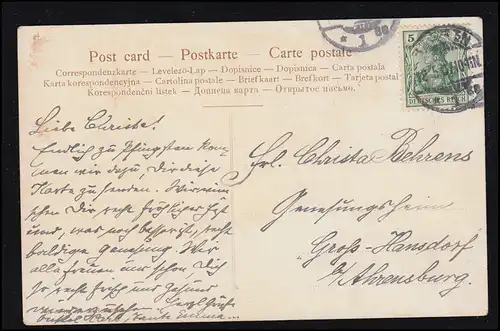 Post card – Postkarte – Carte postale
Correspondenzkarte – Levelező-Lap – Dopisnice – Dopisnica – Carta postala
Karta korespondencyjna – Cartolina postale – Briefkaart – Brefkort – Tarjeta postal
Korespondenční lístek – Дописна карта – Открытое письмо.
5
DEUTSCHES REICH
Liebe Christa!
Endlich zu Pfingsten kom-
men wir dazu, Dir diese
Karte zu senden. Wir wün-
schen Dir recht fröhliches Fest
und, was noch besser ist, recht
baldige Genesung. Wir
alle freuen uns schon Dich
so recht frisch und gesund
wiederzusehen.
Onkel Karl, Tante Emma
Frl. Christa Behrens
Genesungsheim
Groß-Hansdorf
b/Ahrensburg.